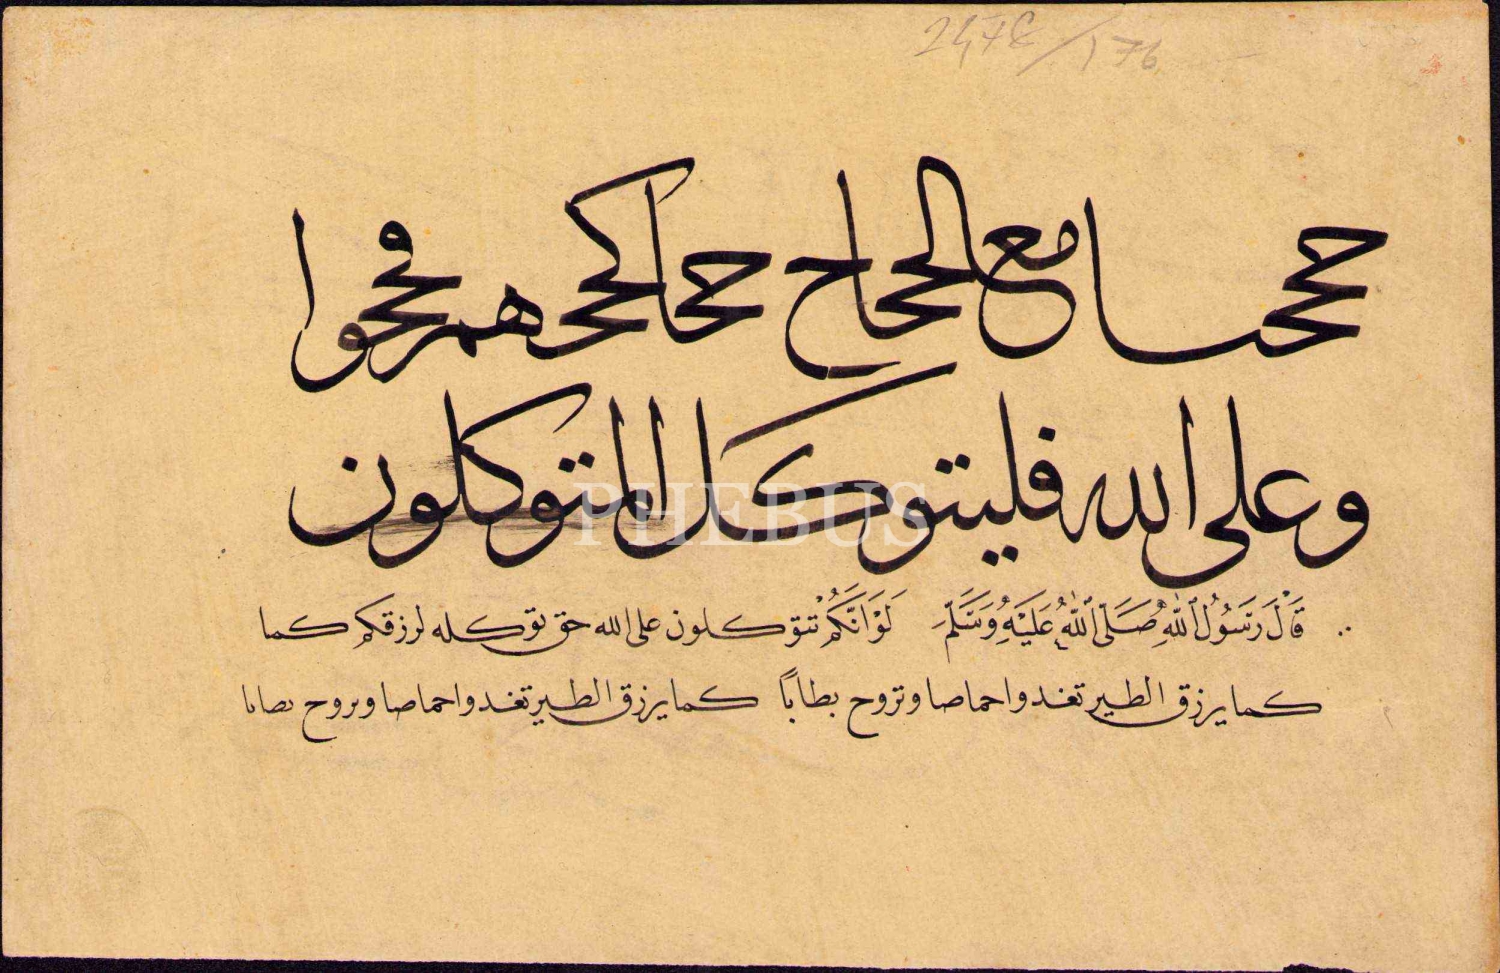 حججنا مع الحجاج حجا كحجهم فحجوا
وعلى الله فليتوكل المتوكلون
PHEBUS
قَالَ رَسُولُ اللهِ صَلَّى اللهُ عَلَيْهِ وَسَلَّمَ لَوْ اَنَّكُمْ تتوكلون على الله حق توكله لرزقكم كما
كما يرزق الطير تغدوا حماصا وتروح بطاباً كما يرزق الطير تغدوا حماصا وتروح بطابا